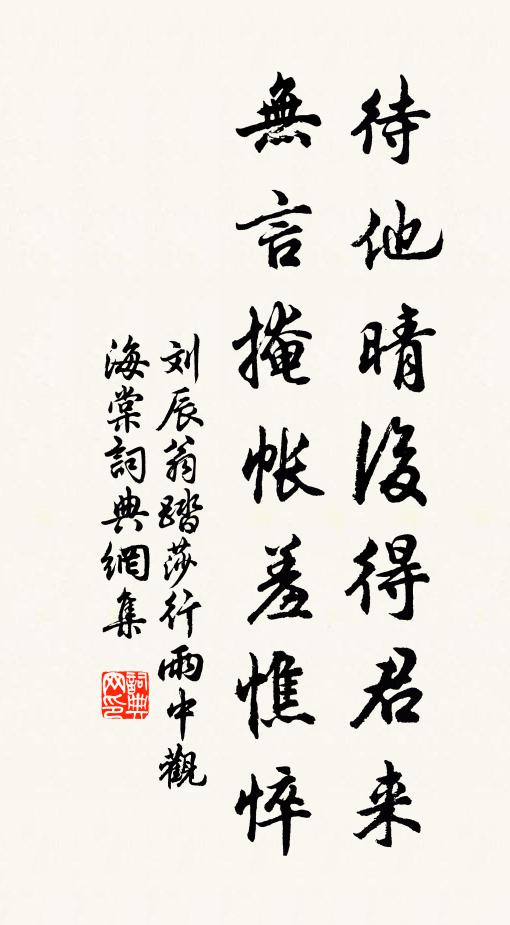 待他晴後得君来
無言掩帳羞憔悴
刘辰翁踏莎行雨中觀
海棠詞典網集
詞典
网印